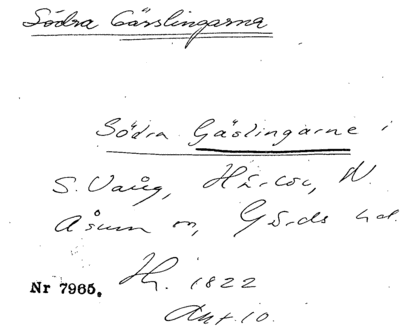 Södra Gässlingarna
Södra Gäslingarne i
S. Vång, Härlöv, N.
Åsum sn, Gärds hd.
Nr 7965. Hh. 1822
Akt. 10.